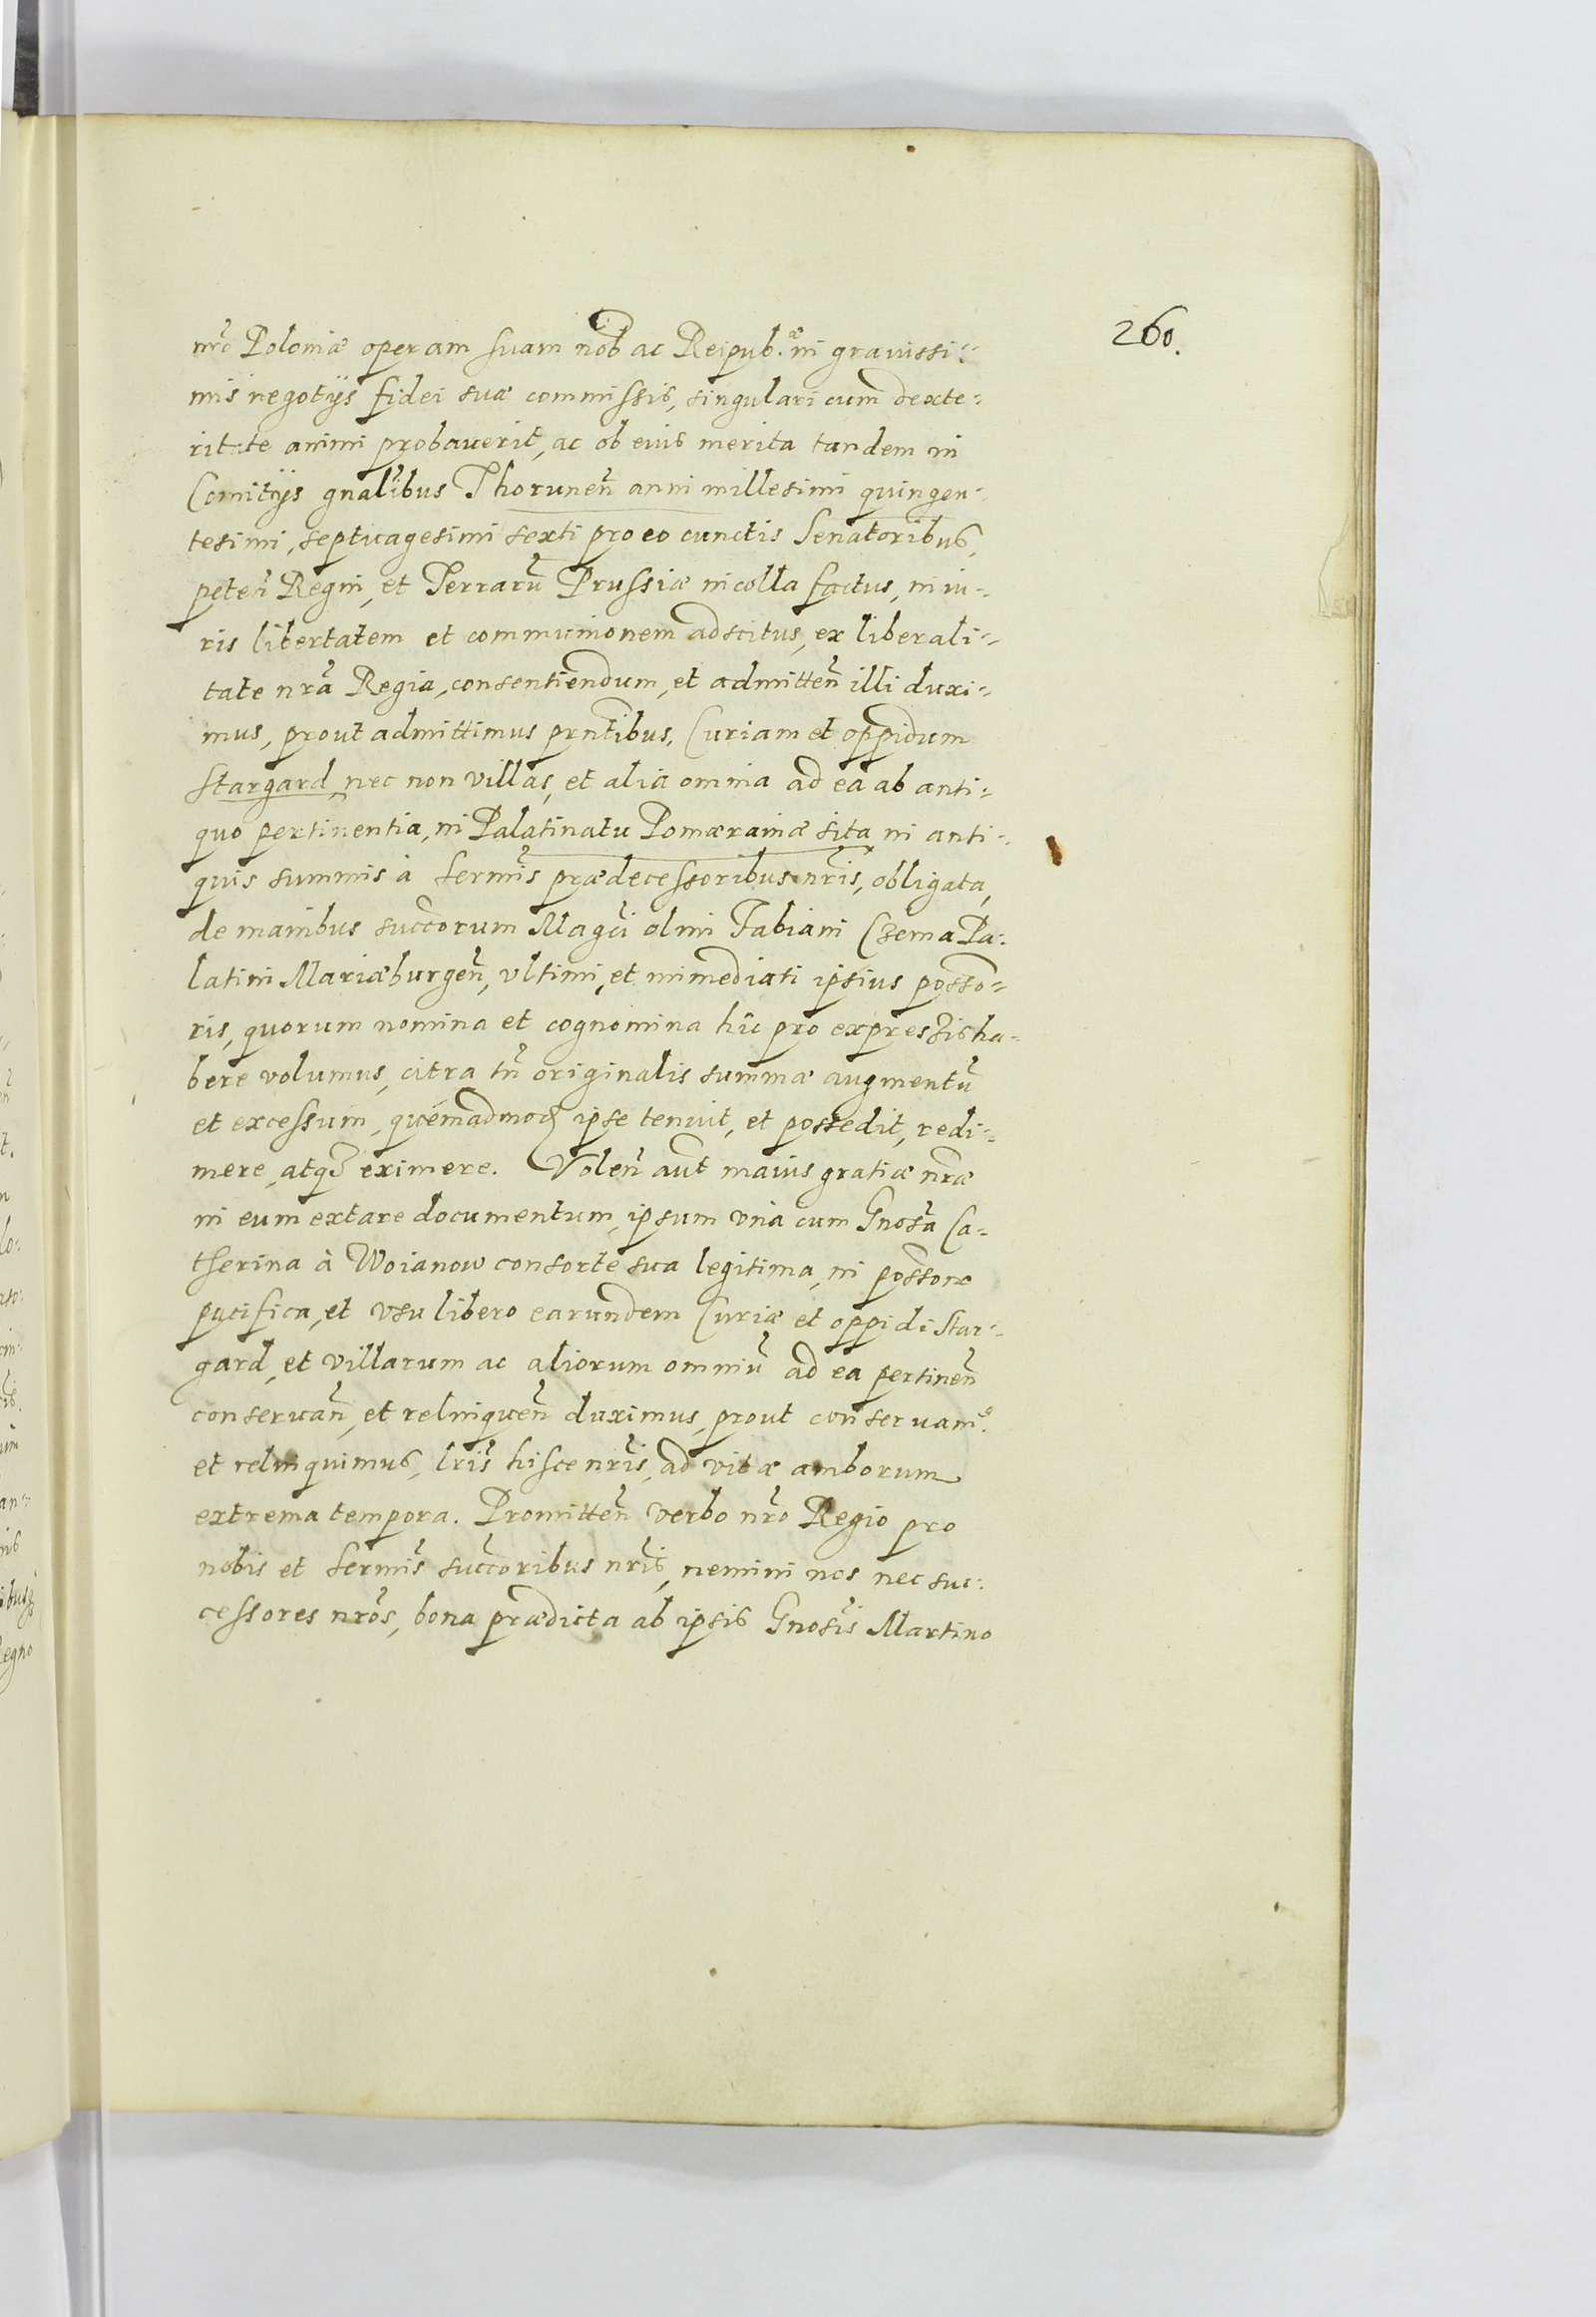 260.
nrõ Poloniæ operam suam nob ac Reipub.æ in grauissi-
mis negotijs fidei suæ commissis, singulari cum dexte-
ritate animi probauerit, ac ob eius merita tandem in
Comitijs gnalibus Thorunen̄ anni millesimi quingen-
tesimi, septuagesimi sexti pro eo cunctis Senatoribus,
peten̄ Regni, et Terrarū Prussiæ incolla factus, in iu-
ris libertatem et communionem adscitus, ex liberali-
tate nrã Regia, consentiendum, et admitten̄ illi duxi-
mus, prout admittimus prntibus, Curiam et oppidum
Stargard, nec non villas, et alia omnia ad ea ab anti-
quo pertinentia, in Palatinatu Pomæraniæ sita in anti-
quis summis à sermis prædecessoribus nris, obligata,
de manibus succorum Magci olim Fabiani Czema Pa-
latini Mariæburgen̄, vltimi, et immediati ipsius posso-
ris, quorum nomina et cognomina hîc pro expressis ha-
bere volumus, citra tn̄ originalis summæ augmentū
et excessum, quemadmod ipse tenuit, et possedit, redi-
mere, atq3 eximere. Volen̄ aut maius gratiæ nræ
in eum extare documentum, ipsum vna cum Gnosa Ca-
therina à Woianow consorte sua legitima, in possone
pacifica, et vsu libero earundem Curiæ et oppidi Star-
gard, et villarum ac aliorum omniū ad ea pertinen̄
conseruan̄, et relinquen̄ duximus, prout conseruam9.
et relinquimus, lris hisce nris, ad vitæ amborum
extrema tempora. Promitten̄ verbo nrõ Regio pro
nobis et sermis succoribus nris, nemini nos nec suc-
cessores nrõs, bona prædicta ab ipsis Gnosis Martino